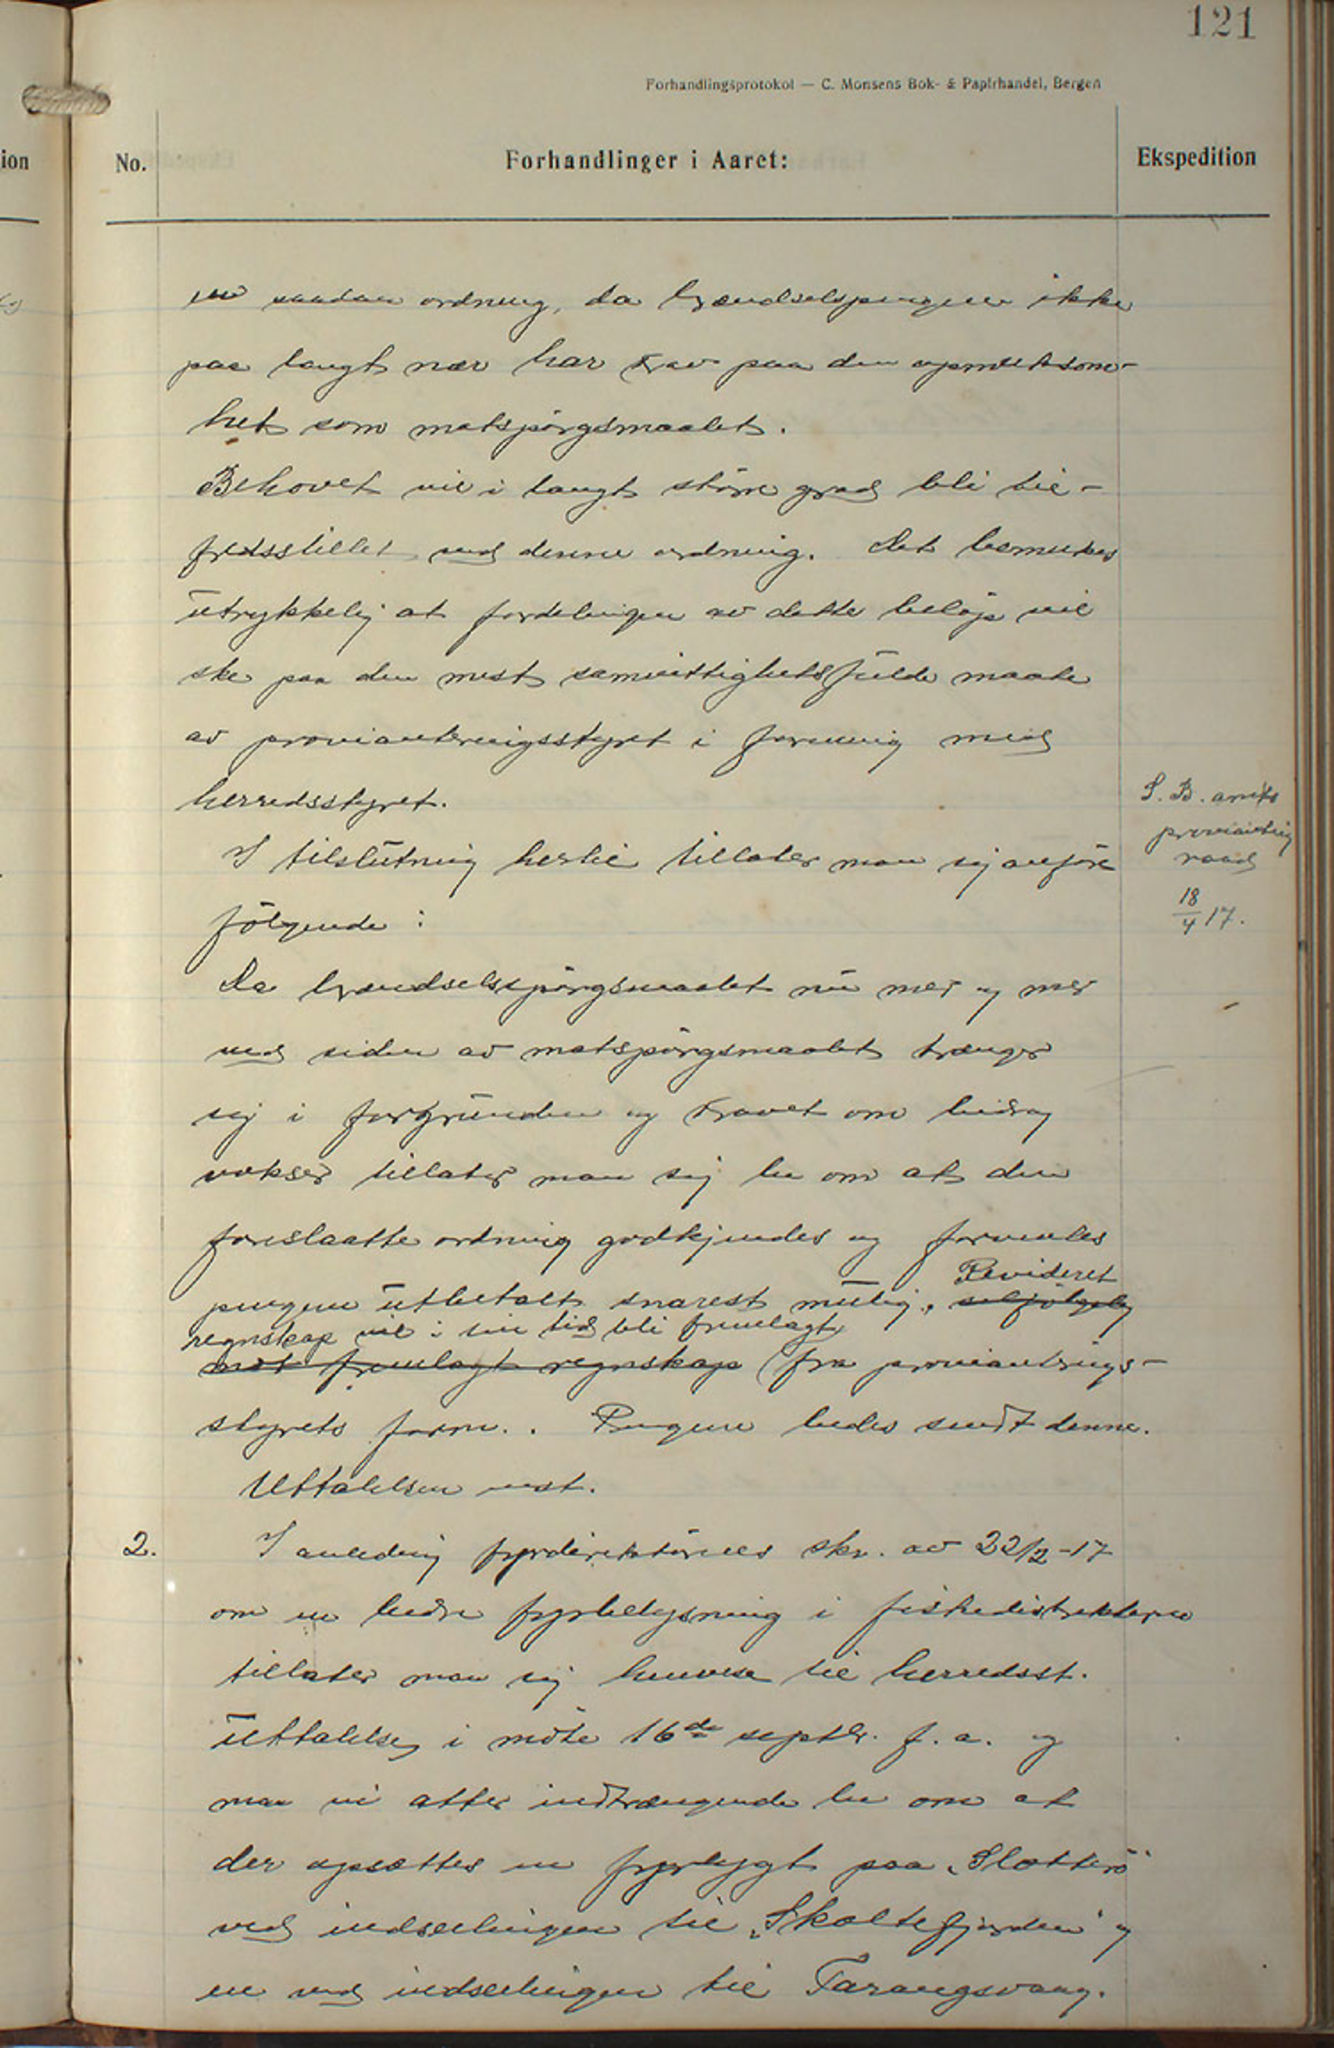 121
Forhandlingsprotokol — C. Monsens Bok- & Papirhandel, Bergen
ion
No.
Forhandlinger i Aaret:
Ekspedition
en saadan ordning, da brændselspengene ikke
paa langt nær har krav paa den opmerksom-
het som matspörgsmaalet.
Behovet vil i langt större grad bli til-
fredsstillet ved denne ordning. Det bemerkes
utrykkelig at fordelingen av dette belöp vil
ske paa den mest samvittighetsfulde maate
av provianteringsstyret i forening med
herredsstyret.
S. B. amts
proviantering
raad
18/4 17.
I tilslutning hertil tillater man sig anföre
fölgende:
Da brændselsspörgsmaalet nu mer og mer
ved siden av matspörgsmaalet trænger
sig i forgrunden og kravet om bidrag
vokser tillater man sig be om at den
foreslaatte ordning godkjendes og forventes
pengene utbetalt snarest mulig. selfölgelig Revideret
regnskap vil i sin tid bli fremlagt
mot fremlagt regnskap (fra provianterings-
styrets form.. Pengene bedes sendt denne.
Uttalelsen enst.
2. I anledning fyrdirektörens skr. av 22/2-17
om en bedre fyrbelysning i fiskedistrikterne
tillater man sig henvise til herredsst.
uttalelse i möte 16de septbr. f. a. og
maa vi atter indtrængende be om at
der opsættes en fyrlygt paa "Slotterö"
ved indseilingen til "Skoltefjorden" og
en ved indseilingen til Tarangsvaag.